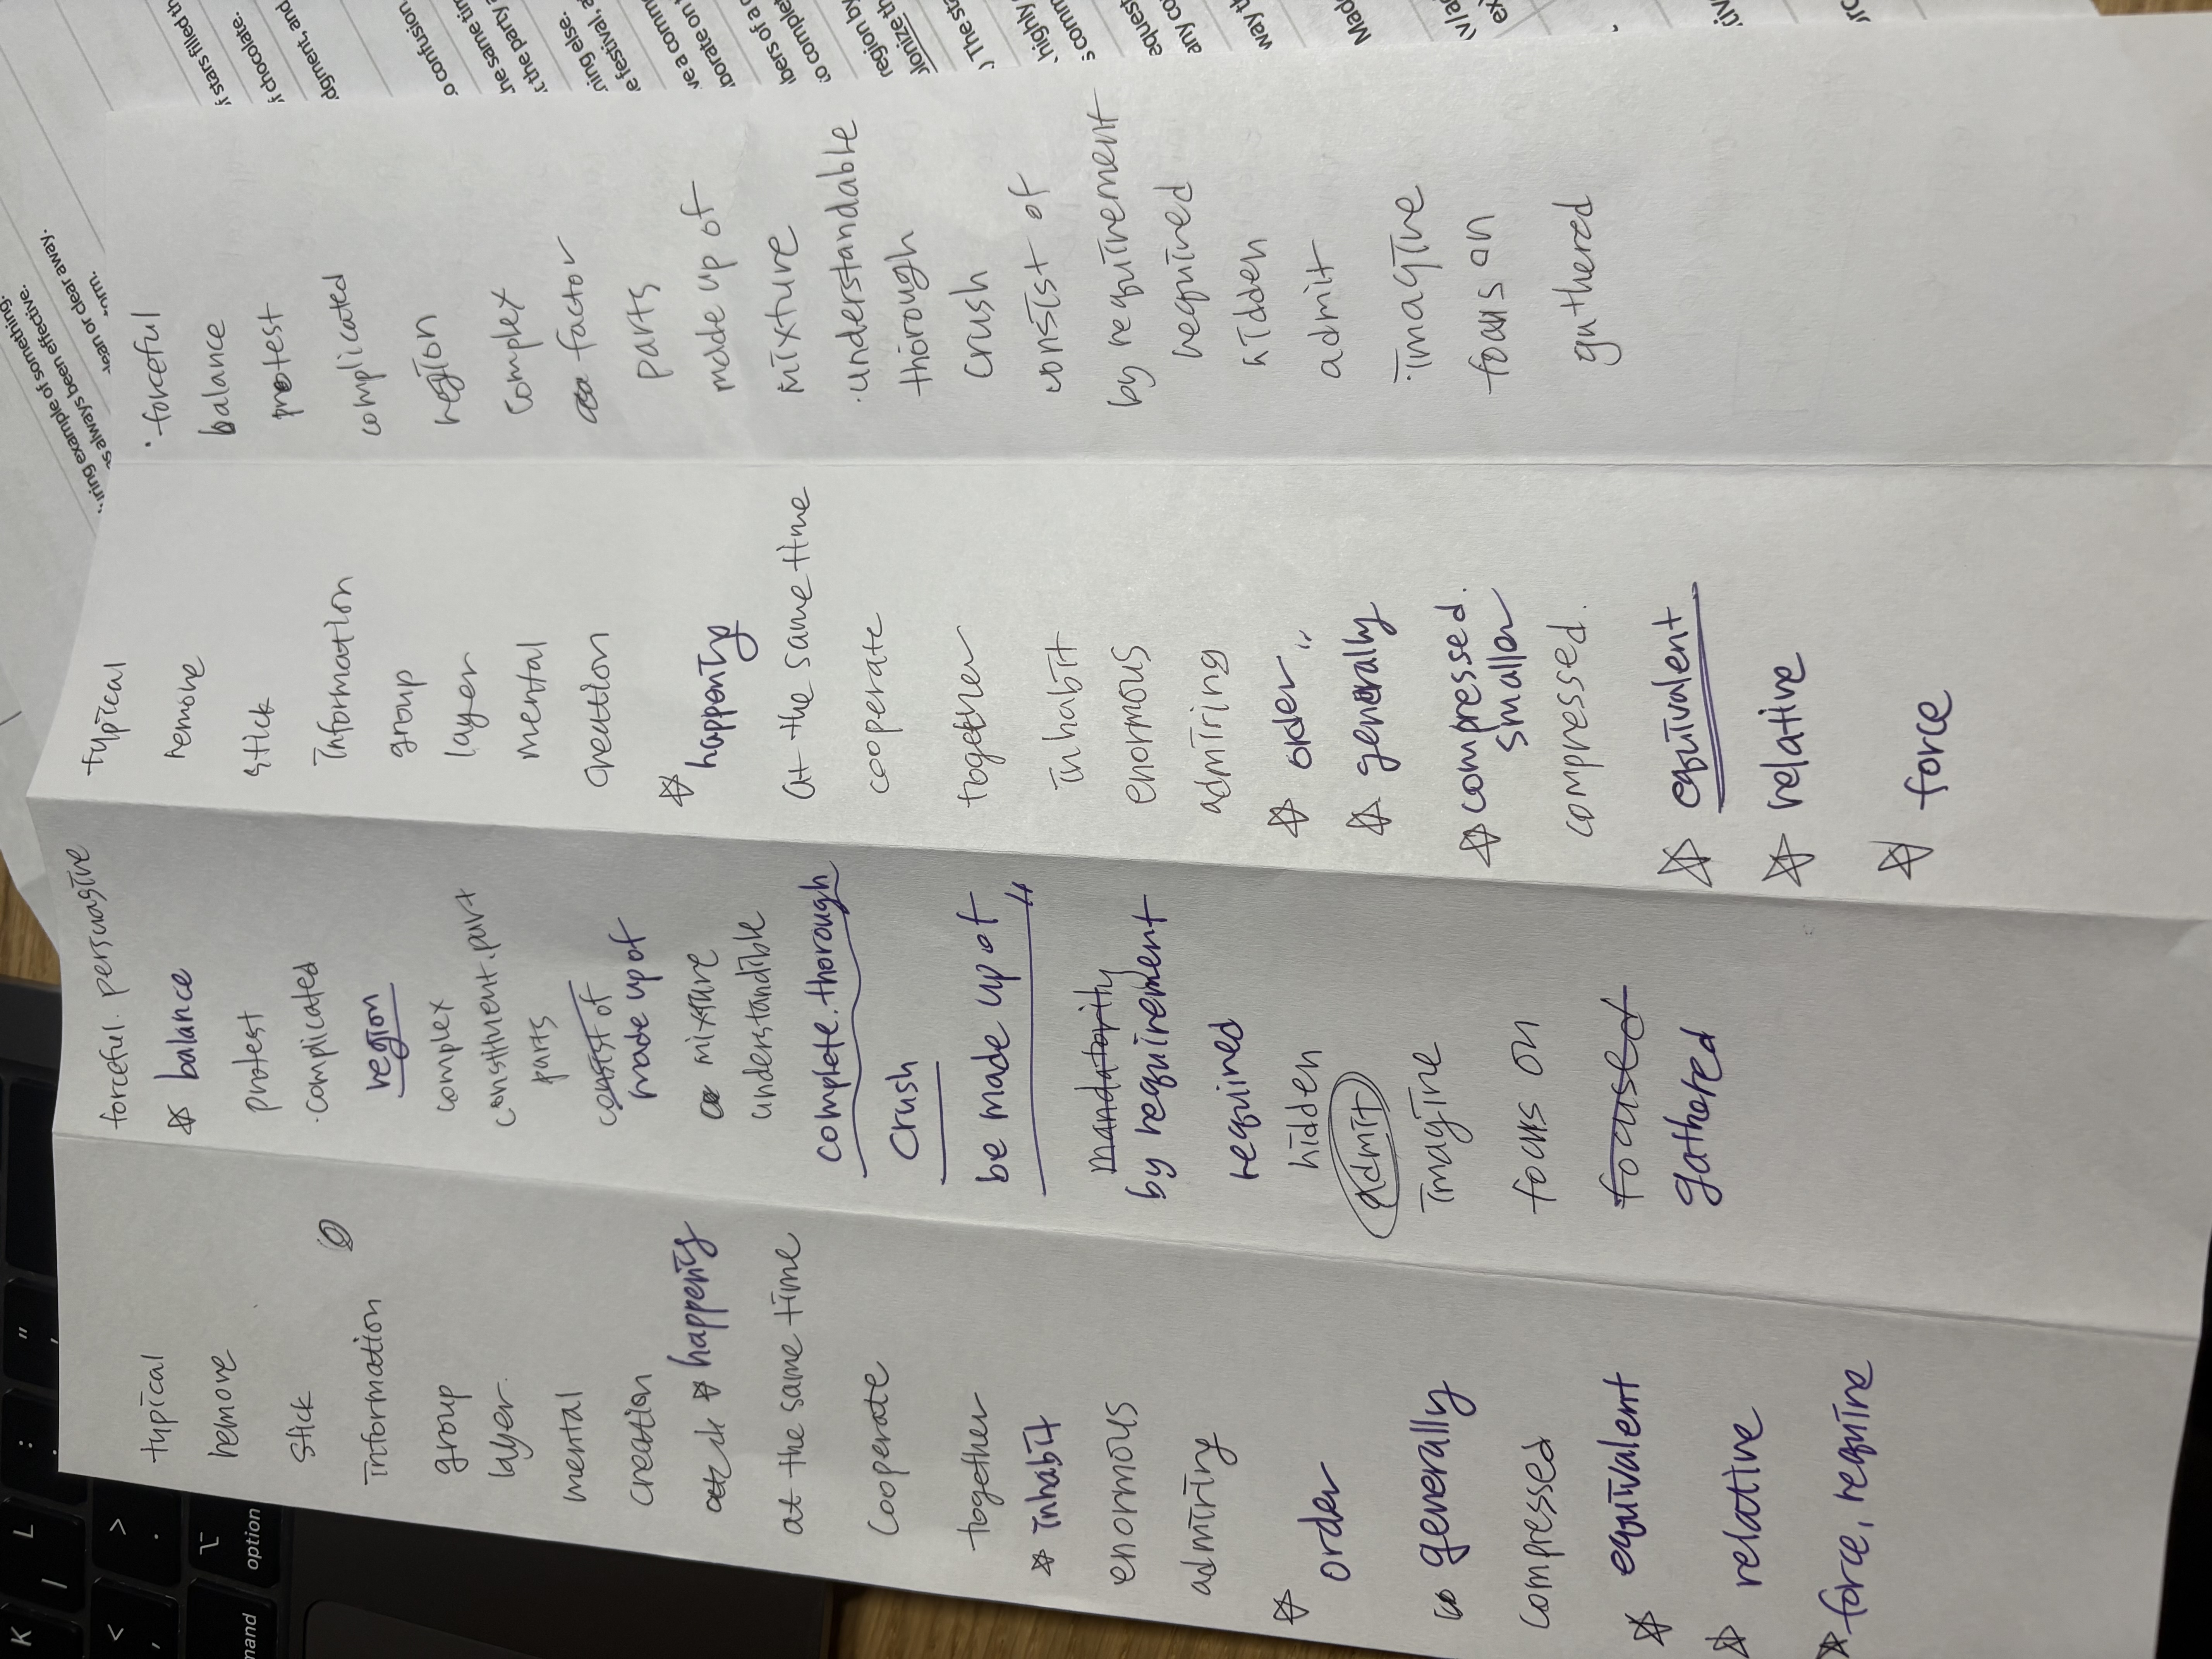 typical
remove
stick
information
group
layer.
mental
creation
☆ happening
at the same time
cooperate
together
☆ inhabit
enormous
admiring
☆ order
generally
compressed
☆ equivalent
☆ relative
☆ force, require
forceful. persuasive
☆ balance
protest
·complicated
region
complex
constituent.part
parts
consist of
made up of
mixture
understandible
complete.thorough
crush
be made up of
mandatority
by requirement
required
hidden
admit
imagine
focus on
focused
gathered
typical
remove
stick
information
group
layer
mental
creation
☆ happening
at the same time
cooperate
together
inhabit
enormous
admiring
☆ order
☆ generally
☆ compressed.
smaller
compressed.
☆ equivalent
☆ relative
☆ force
·forceful
balance
protest
complicated
region
complex
factor
parts
made up of
mixture
·understandable
thorough
crush
consist of
by requirement
required
hidden
admit
·imagine
focus on
gathered
ring example of something.
s always been effective.
ean or clear away.
orm.
stars filled th
chocolate.
dgment, and
o confusion
he same tim
the party a
ning else.
e festival, a
ve a comm
borate on
bers of a c
to complet
region by
lonize th
The sta
highly
s comm
equest
any co
way th
Mad
K
L
<
,
>
.
:
"
option
mand